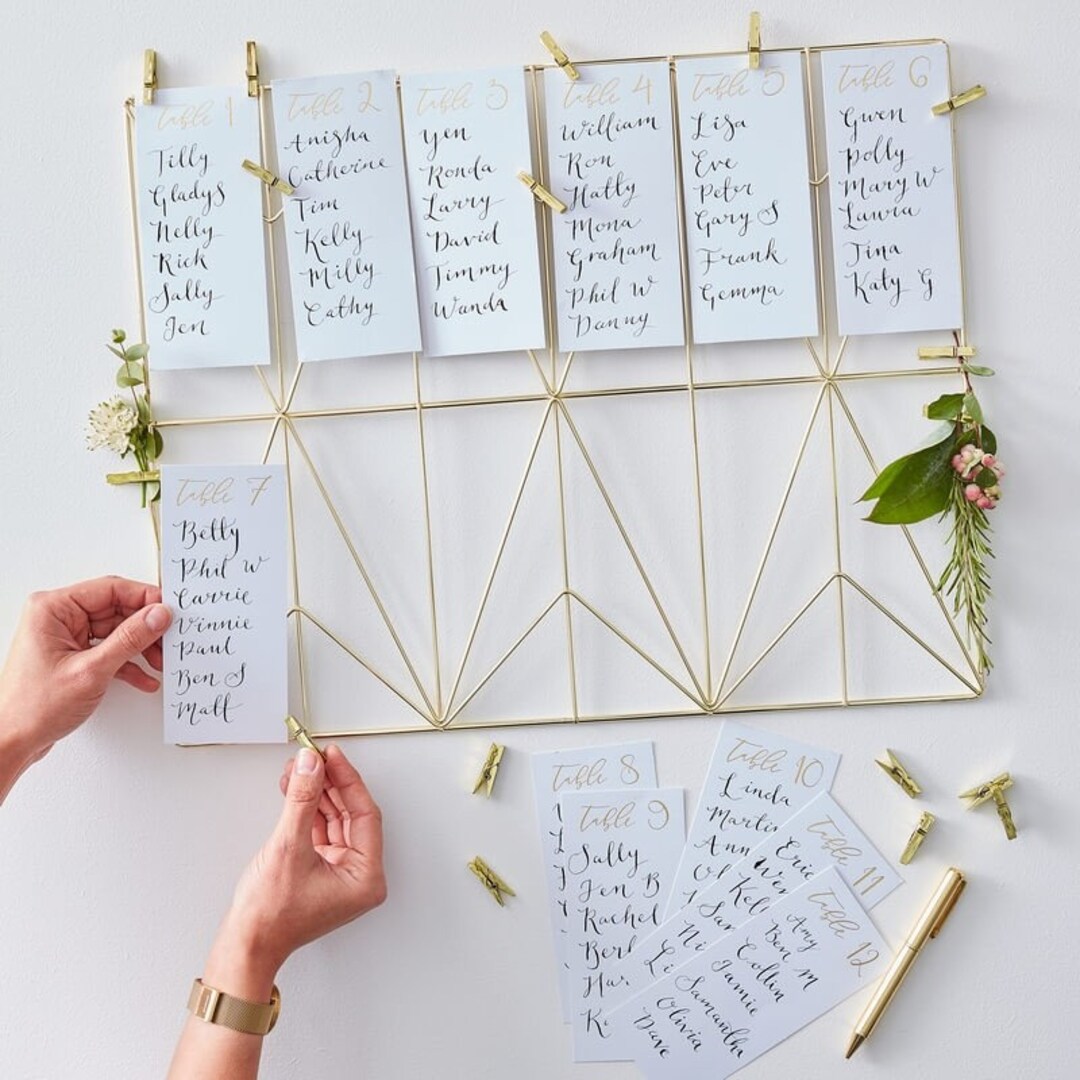 Table 1
Tilly
Gladys
Nelly
Rick
Sally
Jen
Table 2
Anisha
Catherine
Tim
Kelly
Milly
Cathy
Table 3
Yen
Ronda
Larry
David
Timmy
Wanda
Table 4
William
Ron
Hatty
Mona
Graham
Phil W
Danny
Table 5
Lisa
Eve
Peter
Gary S
Frank
Gemma
Table 6
Gwen
Polly
Mary W
Laura
Tina
Katy G
Table 7
Betty
Phil W
Carrie
Vinnie
Paul
Ben S
Matt
Table 8
Table 9
Sally
Jen B
Rachel
Table 10
Linda
Ann
Table 11
Table 12
Amy
Ben M
Collin
Jamie
Samantha
Olivia
Dave